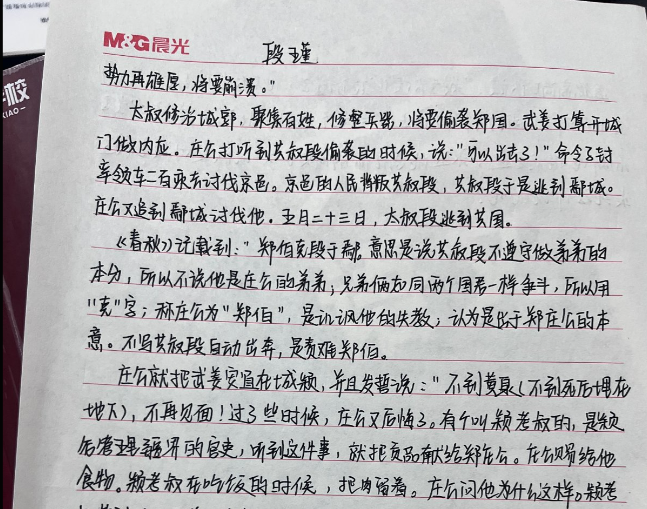 M&G晨光
段瑾
校
XIAO
势力再雄厚，将要崩溃。"
太叔修治城郭，聚集百姓，修整兵器，将要偷袭郑国。武姜打算开城
门做内应。庄公打听到共叔段偷袭的时候，说："可以出击了！"命令子封
率领车二百乘去讨伐京邑。京邑的人民背叛共叔段，共叔段于是逃到鄢城。
庄公又追到鄢城讨伐他。五月二十三日，太叔段逃到共国。
《春秋》记载到："郑伯克段于鄢。意思是说共叔段不遵守做弟弟的
本分，所以不说他是庄公的弟弟；兄弟俩如同两个国君一样争斗，所以用
"克"字；称庄公为"郑伯"，是讥讽他的失教；认为是出于郑庄公的本
意。不写共叔段自动出奔，是责难郑伯。
庄公就把武姜安置在城颍，并且发誓说："不到黄泉（不到死后埋在
地下），不再见面！过了些时候，庄公又后悔了。有个叫颍考叔的，是颍
管理疆界的官吏，听到这件事，就把贡品献给郑庄公。庄公赐给他
食物。颍考叔在吃饭的时候，把肉留着。庄公问他为什么这样。颍考